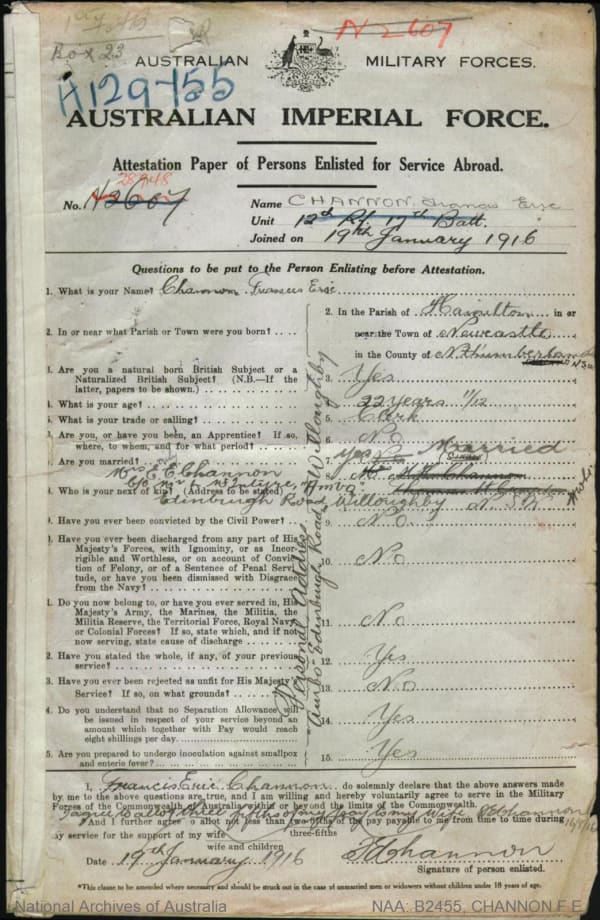 1st M.D.
Box 23
N2607
AUSTRALIAN MILITARY FORCES.
H129455
AUSTRALIAN IMPERIAL FORCE.
Attestation Paper of Persons Enlisted for Service Abroad.
28948
No. N2607
Name CHANNON. Francis Eric
Unit 12th Rf. 17th Batt.
Joined on 19th January 1916
Questions to be put to the Person Enlisting before Attestation.
1. What is your Name? Channon Francis Eric
2. In or near what Parish or Town were you born? ....
2. In the Parish of Hamilton in or
near the Town of Newcastle
in the County of Northumberland
NSW
3. Are you a natural born British Subject or a
Naturalized British Subject? (N.B.—If the
latter, papers to be shown.)
3. Yes
4. What is your age?
4. 22 years 11/12
5. What is your trade or calling?
5. Clerk
6. Are you, or have you been, an Apprentice? If so,
where, to whom, and for what period?
6. No
7. Are you married?
7. Yes Married
(Single)
Mrs E E Channon
C/o Mr L McIntyre, Amba
8. Who is your next of kin? (Address to be stated)
8. Channon
Edinburgh Road, Willoughby N.S.W
9. Have you ever been convicted by the Civil Power?
9. No
10. Have you ever been discharged from any part of His
Majesty's Forces, with Ignominy, or as Incor-
rigible and Worthless, or on account of Convic-
tion of Felony, or of a Sentence of Penal Servi-
tude, or have you been dismissed with Disgrace
from the Navy?
10. No
11. Do you now belong to, or have you ever served in, His
Majesty's Army, the Marines, the Militia, the
Militia Reserve, the Territorial Force, Royal Navy
or Colonial Forces? If so, state which, and if not
now serving, state cause of discharge
11. No
12. Have you stated the whole, if any, of your previous
service?
12. Yes
13. Have you ever been rejected as unfit for His Majesty's
Service? If so, on what grounds?
13. No
14. Do you understand that no Separation Allowance will
be issued in respect of your service beyond an
amount which together with Pay would reach
eight shillings per day.
14. Yes
15. Are you prepared to undergo inoculation against smallpox
and enteric fever?
15. Yes
Personal Address
Amba Edinburgh Road, Willoughby
I, Francis Eric Channon do solemnly declare that the above answers made
by me to the above questions are true, and I am willing and hereby voluntarily agree to serve in the Military
Forces of the Commonwealth of Australia within or beyond the limits of the Commonwealth.
I agree to allot three fifths of my pay to my Wife FEChannon
*And I further agree to allot not less than two-fifths of the pay payable to me from time to time during
three-fifths
my service for the support of my wife
wife and children
Date 19th January 1916
FEChannon
Signature of person enlisted.
*This clause to be amended where necessary and should be struck out in the case of unmarried men or widowers without children under 18 years of age.
National Archives of Australia
NAA: B2455, CHANNON F E